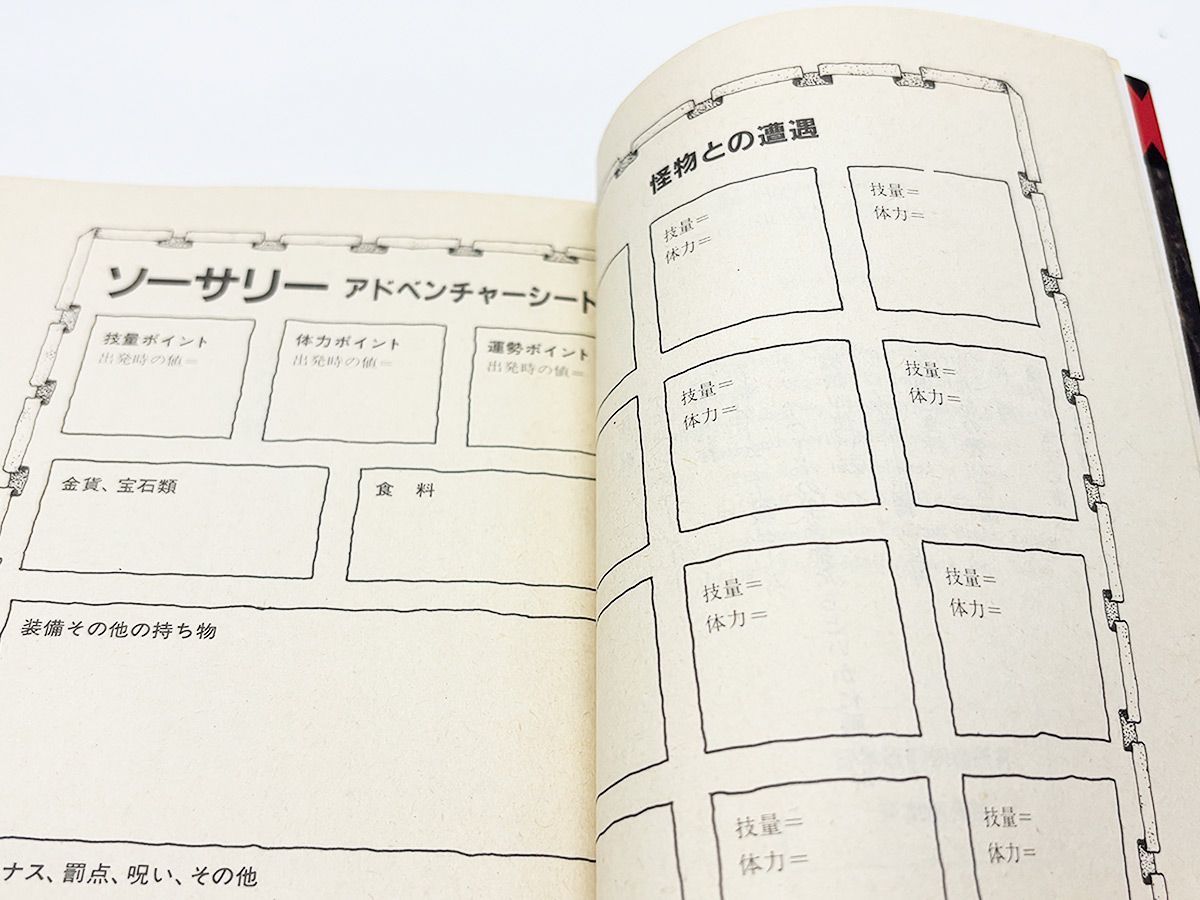 ソーサリー アドベンチャーシート
技量ポイント
出発時の値=
体力ポイント
出発時の値=
運勢ポイント
出発時の値=
金貨、宝石類
食 料
装備その他の持ち物
ナス、罰点、呪い、その他
怪物との遭遇
技量=
体力=
技量=
体力=
技量=
体力=
技量=
体力=
技量=
体力=
技量=
体力=
技量=
体力=
技量=
体力=